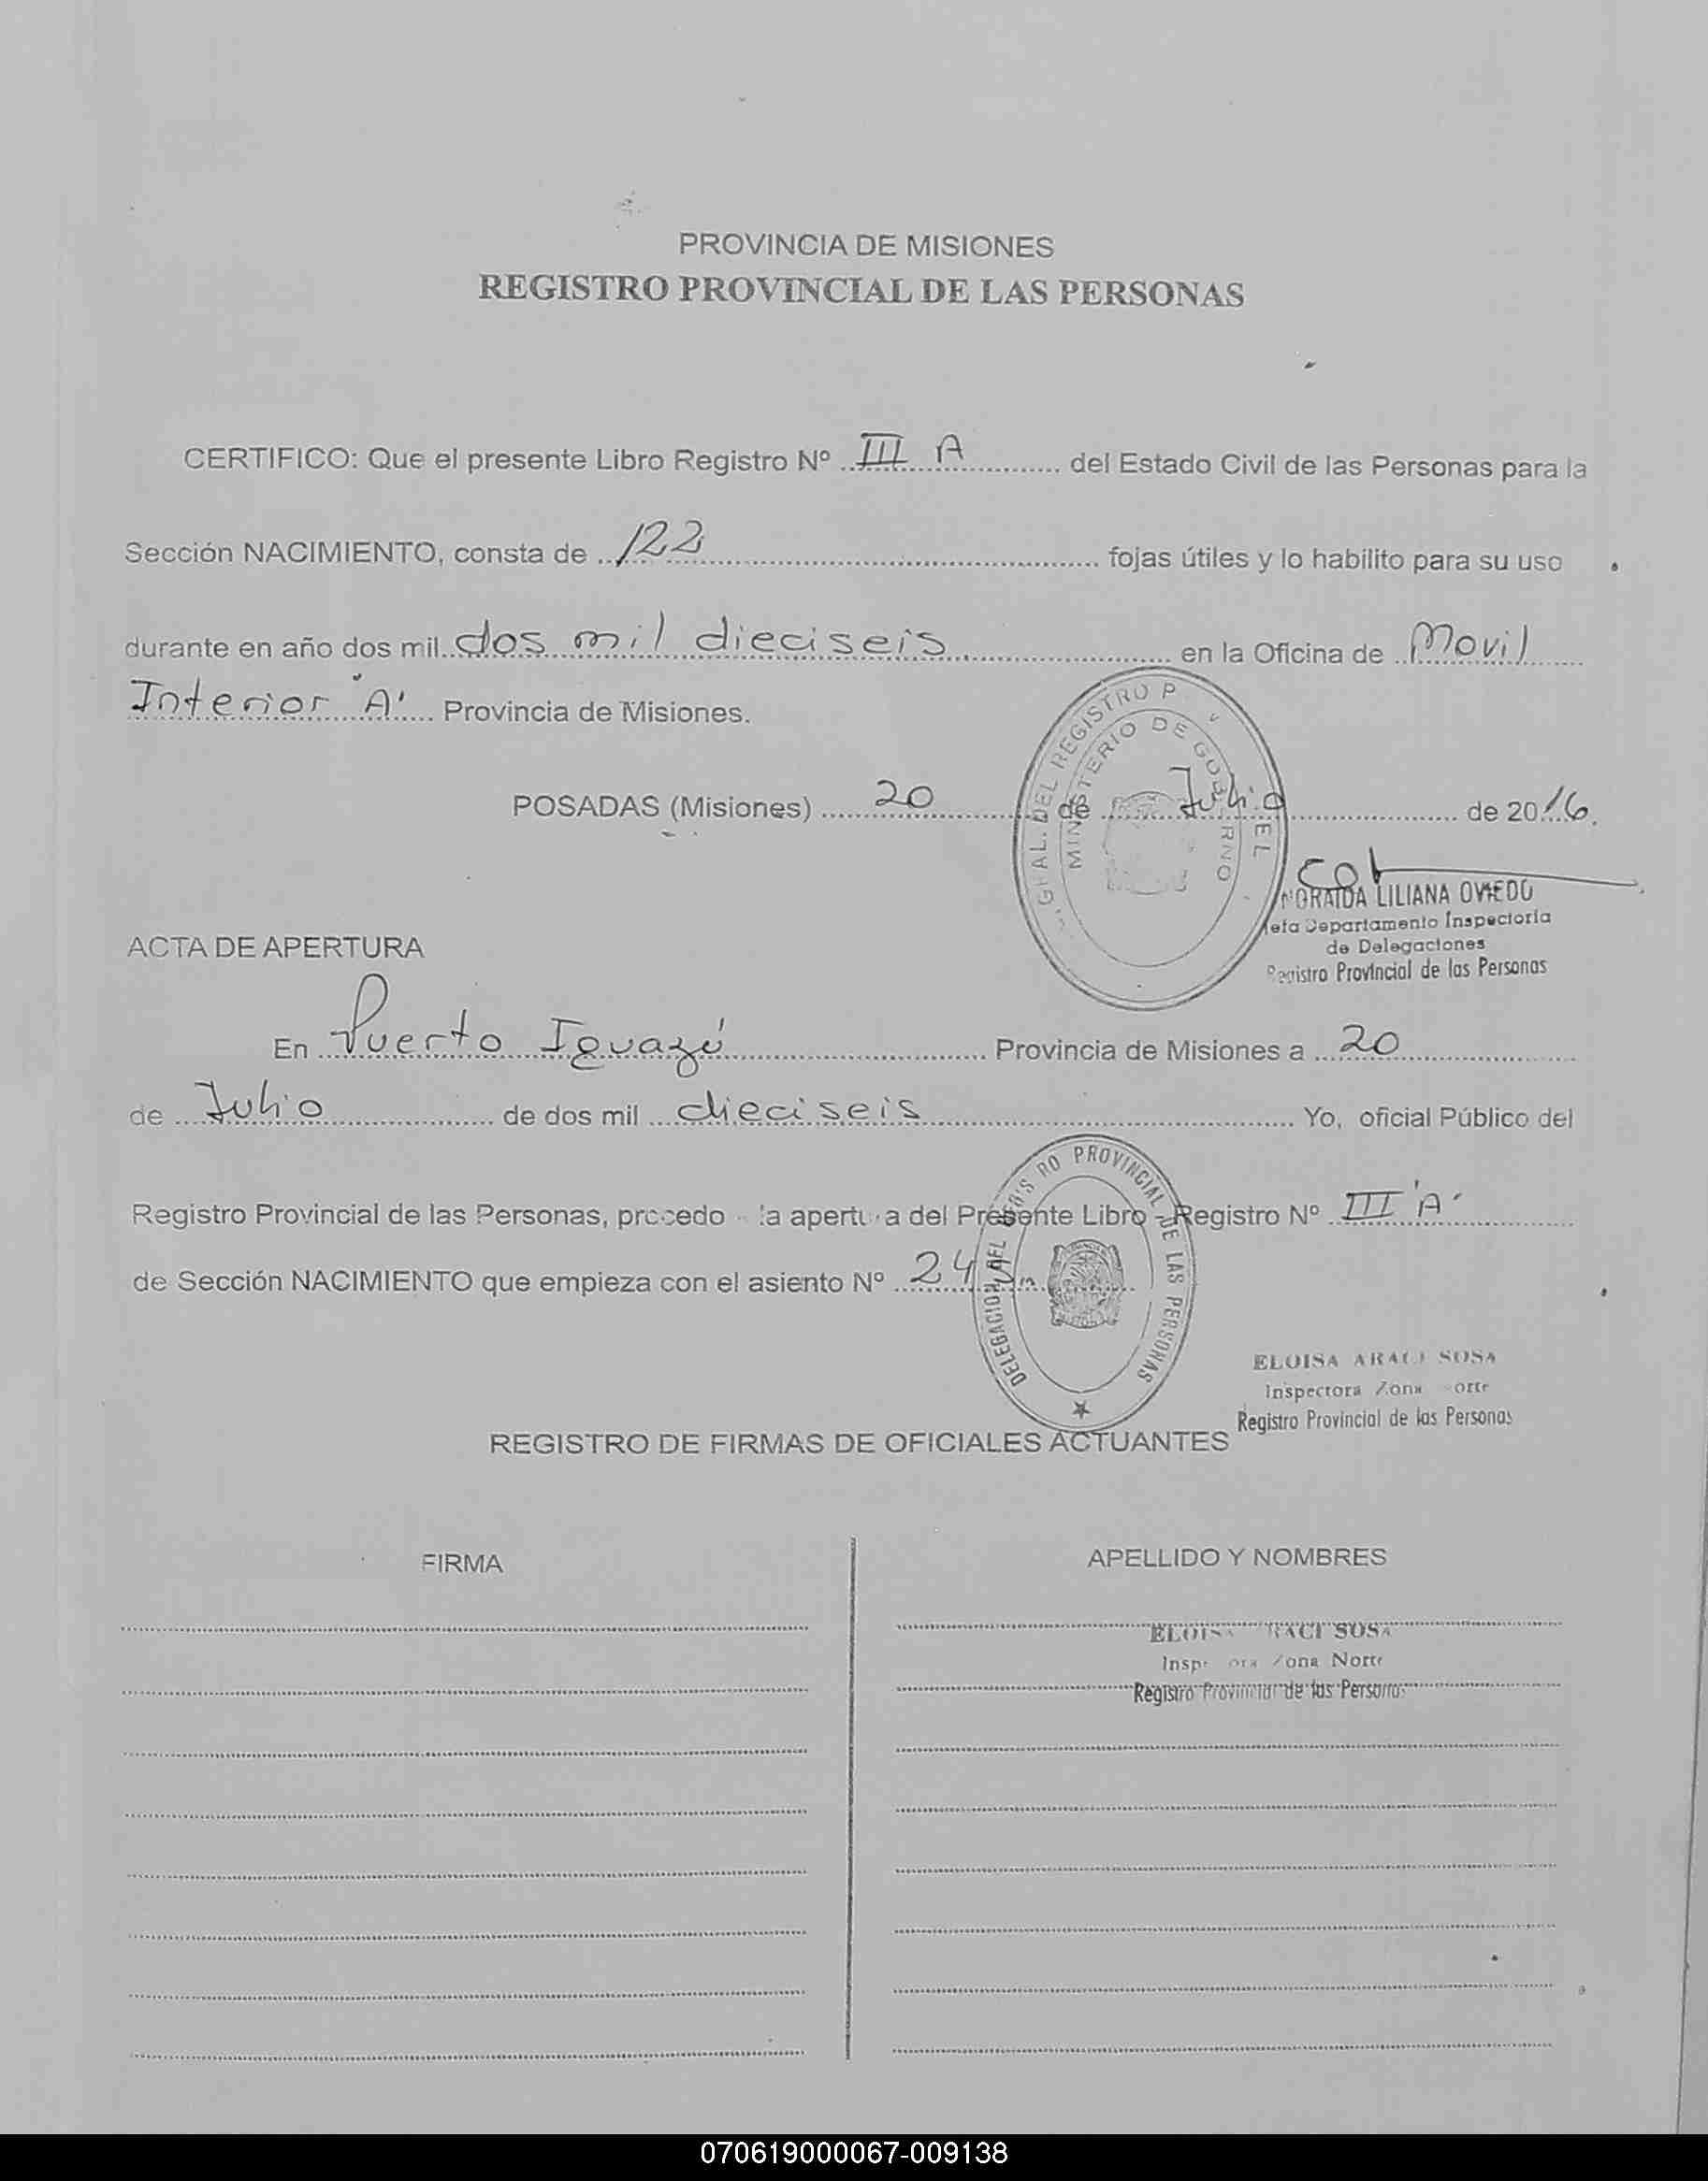 PROVINCIA DE MISIONES
REGISTRO PROVINCIAL DE LAS PERSONAS
CERTIFICO: Que el presente Libro Registro Nº III A del Estado Civil de las Personas para la
Sección NACIMIENTO, consta de 122 fojas útiles y lo habilito para su uso
durante en año dos mil dos mil dieciseis en la Oficina de Movil
Interior "A" Provincia de Misiones.
POSADAS (Misiones) 20 de Julio de 2016.
LILIANA OVIEDO
Departamento Inspectoría
de Delegaciones
Registro Provincial de las Personas
ACTA DE APERTURA
En Puerto Iguazú Provincia de Misiones a 20
de Julio de dos mil dieciseis Yo, oficial Público del
Registro Provincial de las Personas, procedo la apertura del Presente Libro Registro Nº III "A"
de Sección NACIMIENTO que empieza con el asiento Nº
DELEGACION DEL REGISTRO PROVINCIAL DE LAS PERSONAS
ELOISA ARACI SOSA
Inspectora Zona Norte
Registro Provincial de las Personas
REGISTRO DE FIRMAS DE OFICIALES ACTUANTES
FIRMA
APELLIDO Y NOMBRES
ELOISA ARACI SOSA
Inspectora Zona Norte
Registro Provincial de las Personas
070619000067-009138